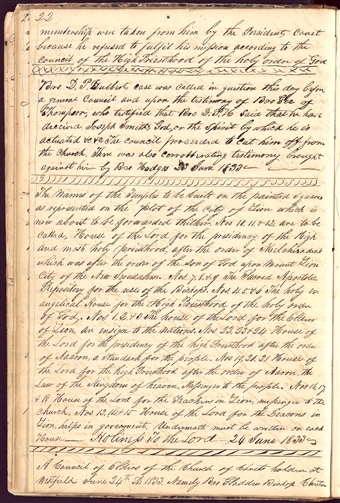 22
membership were taken from him by the Presidents Court
because he refused to fulfil his mission according to the
council of the High Priesthood of the holy order of God
Bro D. P. Hulbuts case was called in question this day by
a general Council and upon the testimony of Bro Gee of
Thompson, who testified that Bro D. P. H. said that he had
deceived Joseph Smith's God, or the Spirit by which he is
actuated &c &c The council proceeded to cut him off from
the Church. There was also corroborating testimony brought
against him by Bro Hodges 23 June 1833
The Names of the Temples to be built on the painted squares
as represented on the plot of the City of Zion which is
now about to be forwarded thither. Nos 10, 11, & 12, are to be
called, House of the Lord for the presidency of the High
and most holy priesthood, after the order of Melchizedec
which was after the order of the son of God upon Mount Zion
City of the New Jerusalem. Nos 7, 8, & 9, The Sacred Apostolic
Repository for the use of the Bishop. Nos 4, 5 & 6 The holy
evangelical House for the High Priesthood of the holy order
of God, Nos 1, 2, & 3 The house of the Lord for the Elders
of Zion, an ensign to the nations. Nos 22, 23 & 24 House of
the Lord for the presidency of the high Priesthood after the order
of Aaron, a Standard for the people. Nos 19, 20, 21 House of
the Lord for the high Priesthood after the order of Aaron, the
Law of the Kingdom of heaven, Messenger to the people. Nos 16, 17
& 18 House of the Lord for the Teachers in Zion, messenger to the
church, Nos 13, 14 & 15 House of the Lord for the Deacons in
Zion, helps in government, Underneath must be written on each
House — Holiness to the Lord — 24 June 1833
A Council of Elders of the Church of Christ holden at
Westfield June 24th 1833. Namely Bro Gladden Bishop